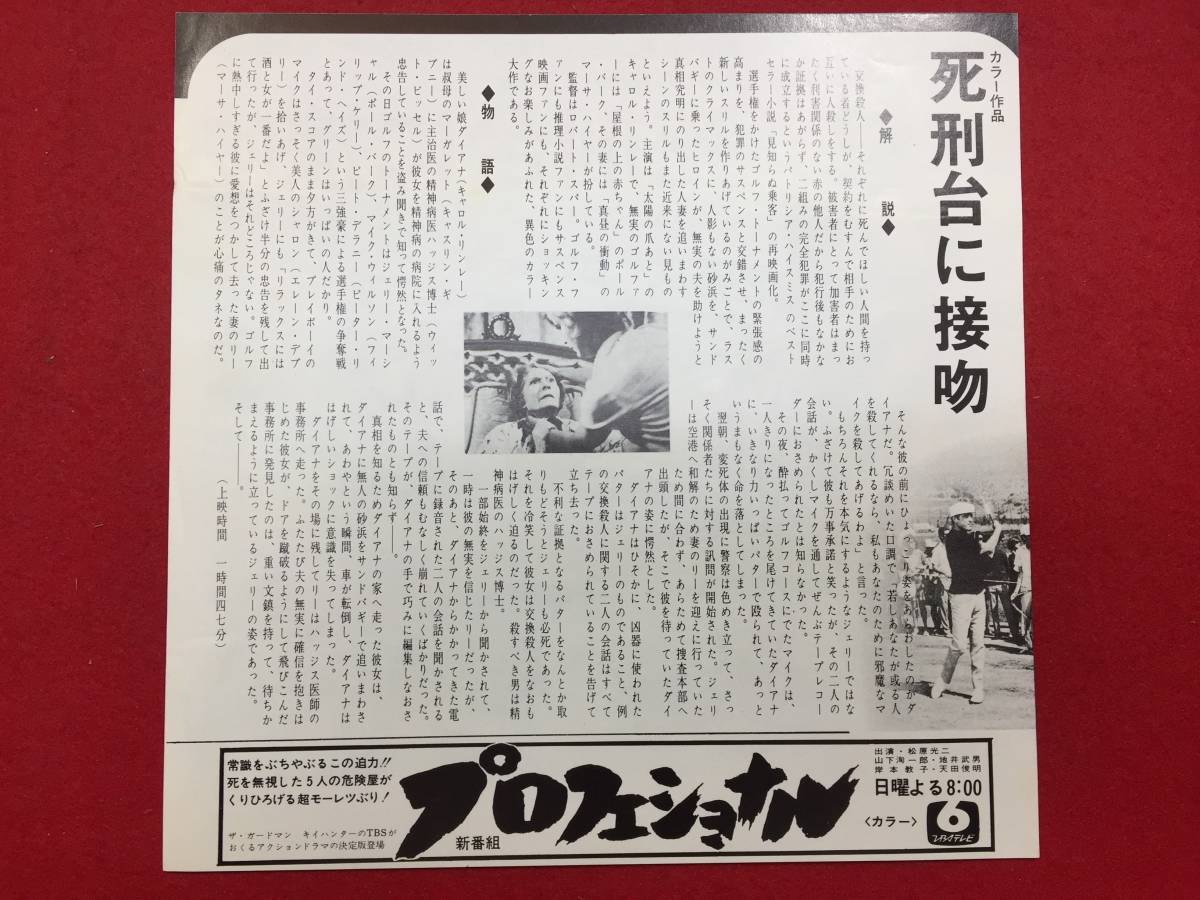 カラー作品
死刑台に接吻
◆解説◆
交換殺人――それぞれに死んでほしい人間を持っ
ている者どうしが、契約をむすんで相手のためにお
互いに人殺しをする。被害者にとって加害者はまっ
たく利害関係のない赤の他人だから犯行後もなかな
か証拠はあがらず、二組みの完全犯罪がここに同時
に成立するというパトリシア・ハイスミスのベスト
セラー小説「見知らぬ乗客」の再映画化。
選手権をかけたゴルフ・トーナメントの緊張感の
高まりを、犯罪のサスペンスと交錯させ、まったく
新しいスリルを作りあげているのがみごとで、ラス
トのクライマックスに、人影もない砂浜を、サンド
バギーに乗ったヒロインが、無実の夫を助けようと
真相究明にのり出した人妻を追いまわす
シーンのスリルもまた近来にない見もの
といえよう。主演は「太陽の爪あと」の
キャロル・リンレーで、無実のゴルファ
ーには「屋根の上の赤ちゃん」のポール
・バーク、その妻には「真昼の衝動」の
マーサ・ハイヤーが扮している。
監督はロバート・スパー。ゴルフ・フ
ァンにも推理小説ファンにもサスペンス
映画ファンにも、それぞれにショッキン
グなお楽しみがあふれた、異色のカラー
大作である。
◆物語◆
美しい娘ダイアナ（キャロル・リンレー）
は叔母のマーガレット（キャスリン・ギ
ブニー）に主治医の精神病医ハッジス博士（ウィッ
ト・ビッセル）が彼女を精神病の病院に入れるよう
忠告していることを盗み聞きで知って愕然となった。
その日ゴルフのトーナメントはジェリー・マーシ
ャル（ポール・バーク）、マイク・ウィルソン（フィ
リップ・ケリー）、ピート・デラニー（ピーター・リ
ンド・ヘイズ）という三強豪による選手権の争奪戦
とあって、グリーンはいっぱいの人だかり。
タイ・スコアのまま夕方がきて、プレイボーイの
マイクはさっそく美人のシャロン（エレーン・デブ
リー）を拾いあげ、ジェリーにも「リラックスには
酒と女が一番だよ」とふざけ半分の忠告を残して出
て行ったが、ジェリーはそれどころじゃない。ゴルフ
に熱中しすぎる彼に愛想をつかして去った妻のリー
（マーサ・ハイヤー）のことが心痛のタネなのだ。
そんな彼の前にひょっこり姿をあらわしたのがダ
イアナだ。冗談めいた口調で「若しあなたが或る人
を殺してくれるなら、私もあなたのために邪魔なマ
イクを殺してあげるわよ」と言った。
もちろんそれを本気にするようなジェリーではな
い。ふざけて彼も万事承諾と笑ったが、その二人の
会話が、かくしマイクを通してぜんぶテープレコー
ダーにおさめられたとは知らなかった。
その夜、酔払ってゴルフコースにでたマイクは、
一人きりになったところを尾けてきていたダイアナ
に、いきなり力いっぱいパターで殴られて、あっと
いうまもなく命を落としてしまった。
翌朝、変死体の出現に警察は色めき立って、さっ
そく関係者たちに対する訊問が開始された。ジェリ
ーは空港へ和解のため妻のリーを迎えに行っていた
ため間に合わず、あらためて捜査本部へ
出頭したが、そこで彼を待っていたダイ
アナの姿に愕然とした。
ダイアナはひそかに、凶器に使われた
パターはジェリーのものであること、例
の交換殺人に関する二人の会話はすべて
テープにおさめられていることを告げて
立ち去った。
不利な証拠となるパターをなんとか取
りもどそうとジェリーも必死であった。
それを冷笑して彼女は交換殺人をなおも
はげしく迫るのだった。殺すべき男は精
神病医のハッジス博士。
一部始終をジェリーから聞かされて、
一時は彼の無実を信じたリーだったが、
そのあと、ダイアナからかかってきた電
話で、テープに録音された二人の会話を聞かされる
と、夫への信頼もむなしく崩れていくばかりだった。
そのテープが、ダイアナの手で巧みに編集しなおさ
れたものとも知らず――。
真相を知るためダイアナの家へ走った彼女は、
ダイアナに無人の砂浜をサンドバギーで追いまわさ
れて、あわやという瞬間、車が転倒し、ダイアナは
はげしいショックに意識を失ってしまった。
ダイアナをその場に残してリーはハッジス医師の
事務所へ走った。ふたたび夫の無実に確信を抱きは
じめた彼女が、ドアを蹴破るようにして飛びこんだ
事務所に発見したのは、重い文鎮を持って、待ちか
まえるように立っているジェリーの姿であった。
そして――。
（上映時間　一時間四七分）
常識をぶちやぶるこの迫力!!
死を無視した5人の危険屋が
くりひろげる超モーレツぶり!
ザ・ガードマン　キイハンターのTBSが
おくるアクションドラマの決定版登場
新番組
プロフェショナル
〈カラー〉
出演・松原光二
山下洵一郎・地井武男
岸本教子・天田俊明
日曜よる8:00
6
TBSテレビ